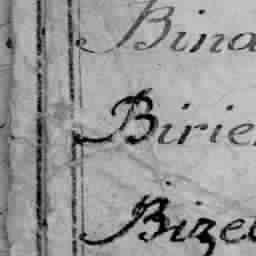 Bina
Birie
Bizet